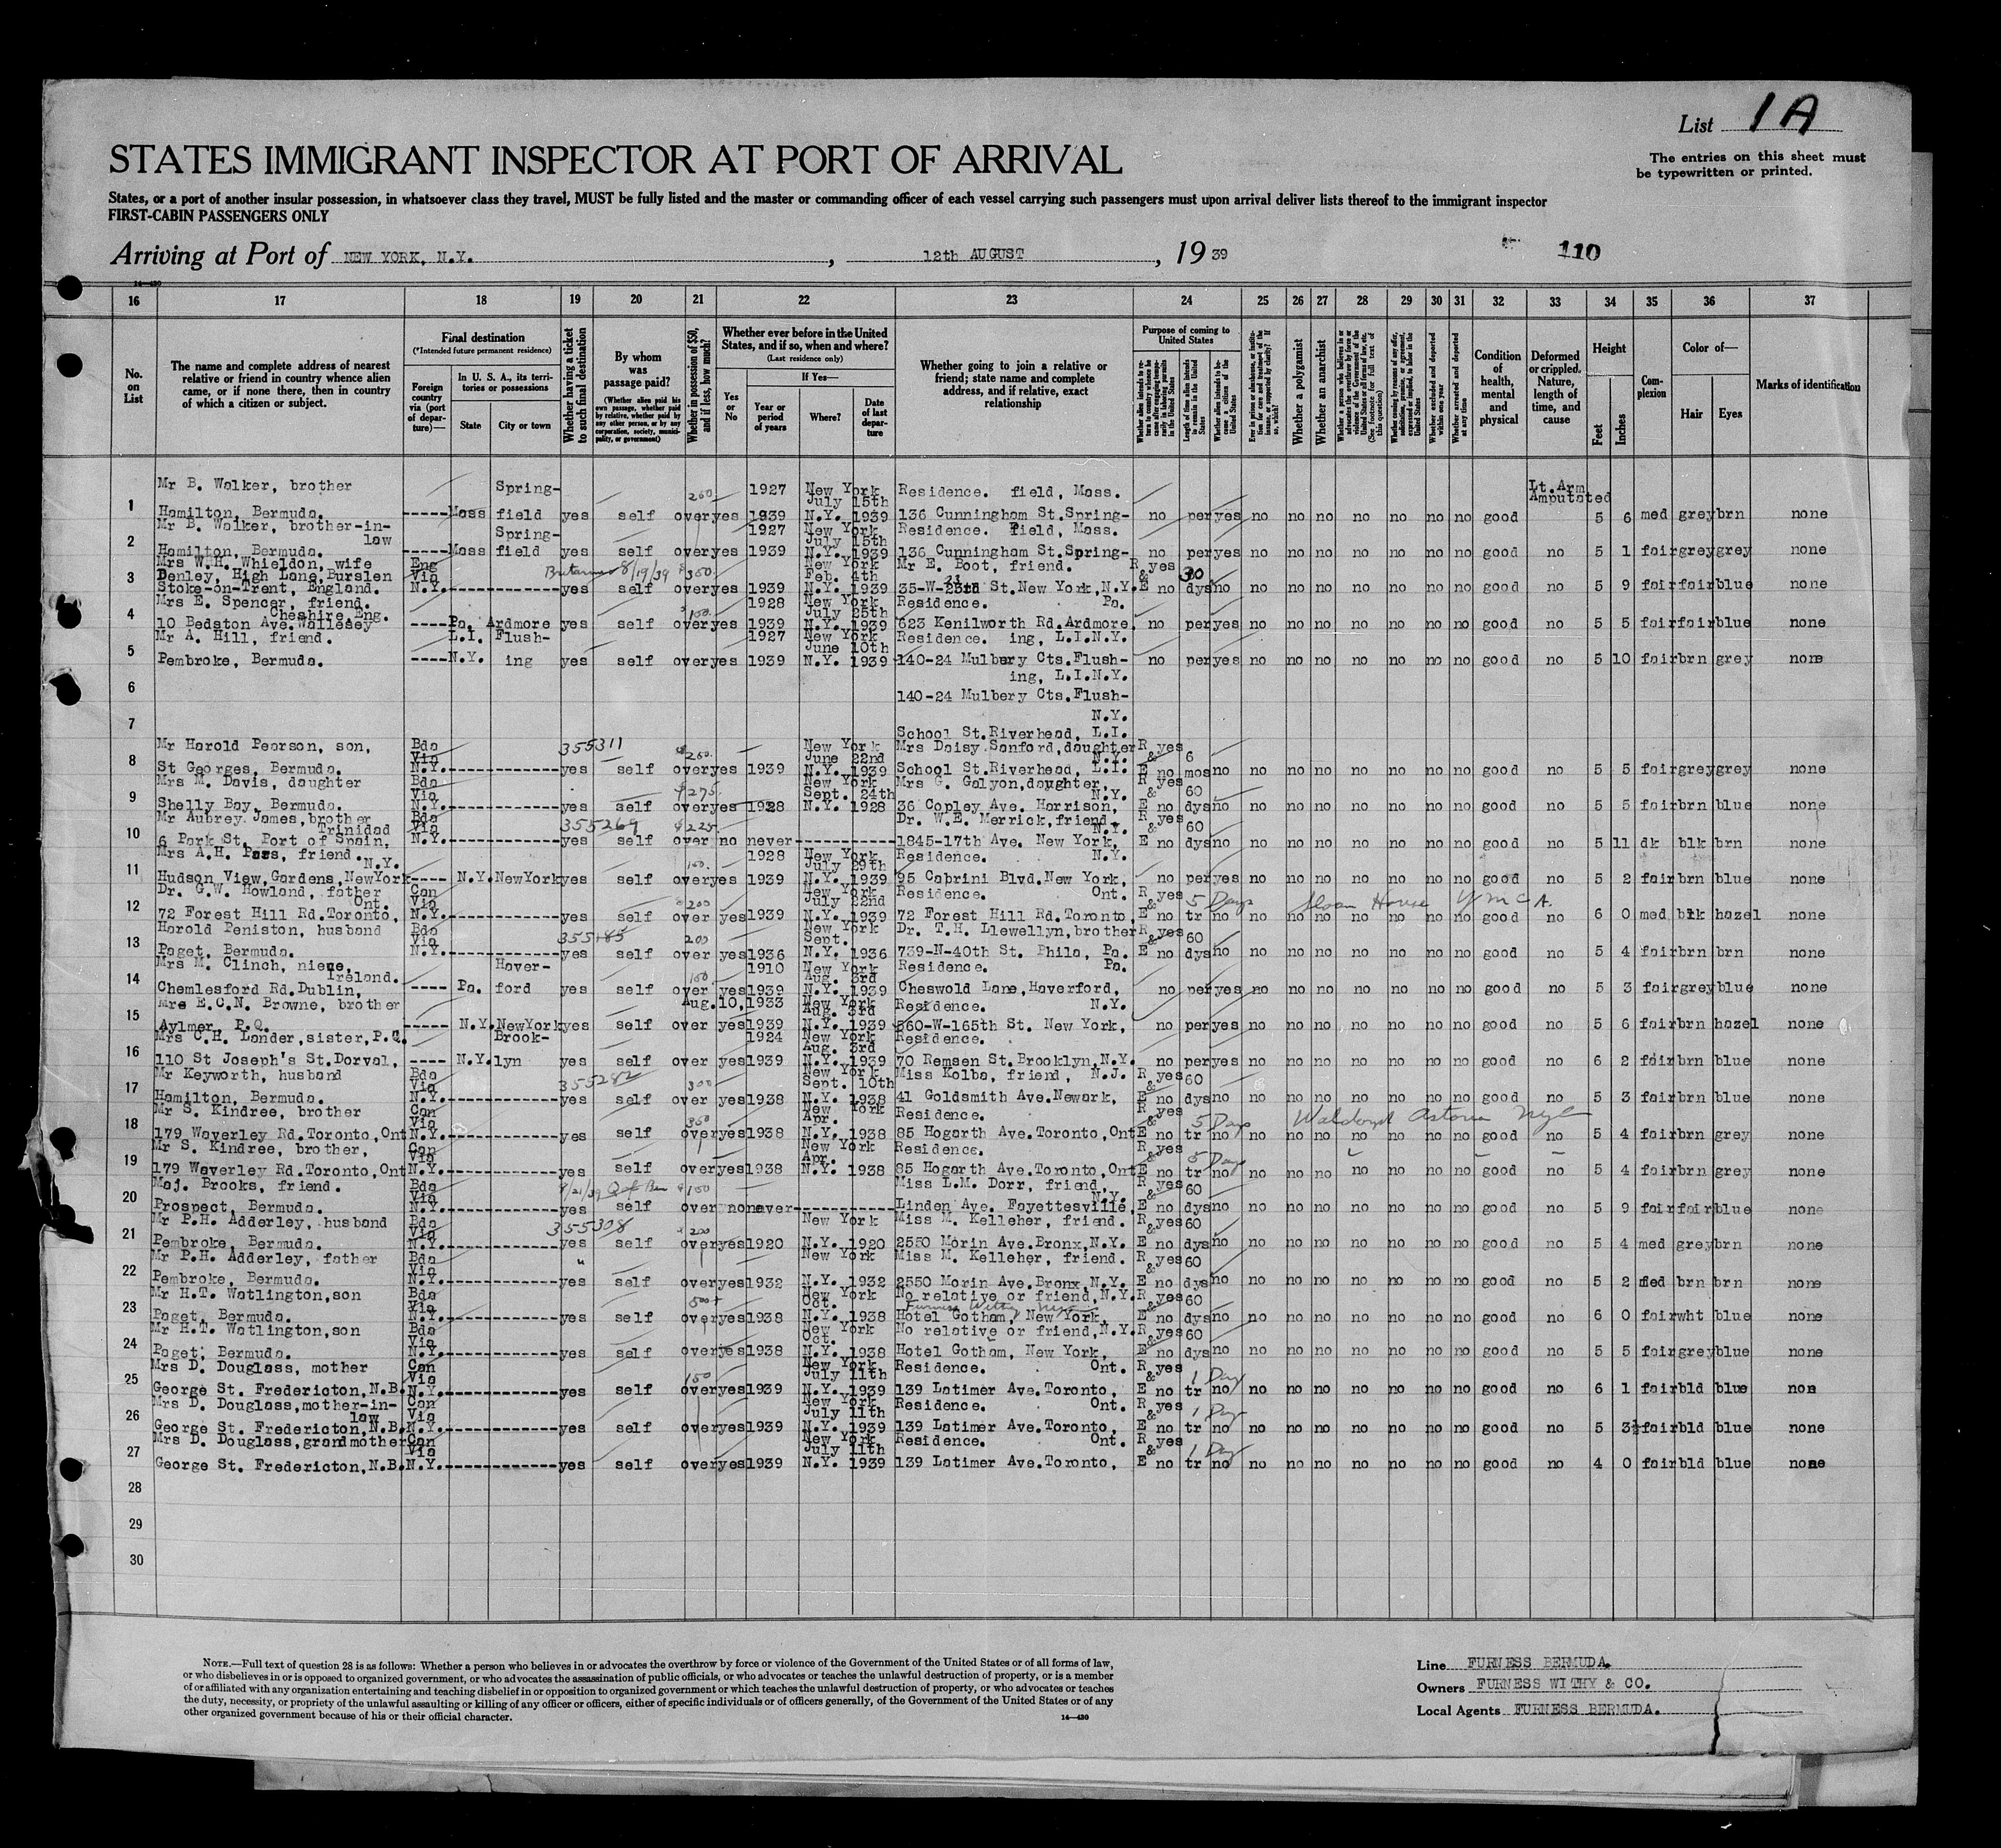 List 1A
STATES IMMIGRANT INSPECTOR AT PORT OF ARRIVAL
The entries on this sheet must
be typewritten or printed.
States, or a port of another insular possession, in whatsoever class they travel, MUST be fully listed and the master or commanding officer of each vessel carrying such passengers must upon arrival deliver lists thereof to the immigrant inspector
FIRST-CABIN PASSENGERS ONLY
Arriving at Port of NEW YORK, N.Y. , 12th AUGUST , 19 39 110
14—430
16 17 18 19 20 21 22 23 24 25 26 27 28 29 30 31 32 33 34 35 36 37
No. on List
The name and complete address of nearest relative or friend in country whence alien came, or if none there, then in country of which a citizen or subject.
Final destination
(*Intended future permanent residence)
Foreign country via (port of departure)—
In U. S. A., its territories or possessions
State City or town
Whether having a ticket to such final destination
By whom was passage paid?
(Whether alien paid his own passage, whether paid by relative, whether paid by any other person, or by any corporation, society, municipality, or government)
Whether in possession of $50, and if less, how much?
Whether ever before in the United States, and if so, when and where?
(Last residence only)
If Yes—
Yes or No
Year or period of years
Where?
Date of last departure
Whether going to join a relative or friend; state name and complete address, and if relative, exact relationship
Purpose of coming to United States
Length of time alien intends to remain in the United States
Whether alien intends to become a citizen of the United States
Whether a polygamist
Whether an anarchist
Whether excluded and deported within one year
Whether arrested and deported at any time
Condition of health, mental and physical
Deformed or crippled. Nature, length of time, and cause
Height
Feet Inches
Complexion
Color of—
Hair Eyes
Marks of identification
Mr B. Walker, brother Spring- 250 1927 New York Residence. field, Mass. Lt. Arm
July 15th Amputated
1 Hamilton, Bermuda. -----Mass field yes self over yes 1939 N.Y. 1939 136 Cunningham St.Spring- no per yes no no no no no no no good 5 6 med grey brn none
Mr B. Walker, brother-in-law Spring- 1927 New York Residence. field, Mass.
July 15th
2 Hamilton, Bermuda. -----Mass field yes self over yes 1939 N.Y. 1939 136 Cunningham St.Spring- no per yes no no no no no no no good no 5 1 fair grey grey none
Mrs W.H. Whieldon, wife Eng New York Mr E. Boot, friend. R yes
Denley, High Lane,Burslen Via 8/19/39 $350. Feb. 4th & 30
3 Stoke-on-Trent, England. N.Y.-----------yes self over yes 1939 N.Y. 1939 35-W-23rd St.New York,N.Y. E no dys no no no no no no no no good no 5 9 fair fair blue none
Mrs E. Spencer, friend. 1928 New York Residence. Pa.
Cheshire,Eng. $100. July 25th
4 10 Bedston Ave.Wallesey -----Pa. Ardmore yes self over yes 1939 N.Y. 1939 623 Kenilworth Rd.Ardmore, no per yes no no no no no no no good no 5 5 fair fair blue none
Mr A. Hill, friend. L.I. Flush- 1927 New York Residence. ing, L.I.N.Y.
June 10th
5 Pembroke, Bermuda. ----N.Y. ing yes self over yes 1939 N.Y. 1939 140-24 Mulbery Cts.Flush- no per yes no no no no no no no good no 5 10 fair brn grey none
ing, L.I.N.Y.
6 140-24 Mulbery Cts.Flush-
N.Y.
7 School St.Riverhead, L.I.
Mr Harold Pearson, son, Bda 355311 $250. New York Mrs Daisy Sanford,daughter R yes
Via June 22nd N.Y. & 6
8 St Georges, Bermuda. N.Y.-----------yes self over yes 1939 N.Y. 1939 School St.Riverhead, L.I. E no mos no no no no no no no no good no 5 5 fair grey grey none
Mrs M. Davis, daughter Bda New York Mrs G. Galyon,daughter, R yes
Via $275. Sept. 24th N.Y. & 60
9 Shelly Bay, Bermuda. N.Y.-----------yes self over yes 1928 N.Y. 1928 36 Copley Ave. Harrison, E no dys no no no no no no no no good no 5 5 fair brn blue none
Mr Aubrey James,brother Bda Dr. W.E. Merrick,friend R yes
Trinidad Via 355269 $225. N.Y. & 60
10 6 Park St. Port of Spain, N.Y.-----------yes self over no never-----------1845-17th Ave. New York, E no dys no no no no no no no no good no 5 11 dk blk brn none
Mrs A.H. Pass, friend. 1928 New York Residence. N.Y.
N.Y. 150. July 29th
11 Hudson View Gardens,NewYork---- N.Y.NewYork yes self over yes 1939 N.Y. 1939 95 Cabrini Blvd.New York, no per yes no no no no no no no good no 5 2 fair brn blue none
Dr. G.W. Howland, father Can New York Residence. Ont. R yes
Ont. Via 200 July 22nd & 5 Days Sloan House YMCA.
12 72 Forest Hill Rd.Toronto, N.Y.-----------yes self over yes 1939 N.Y. 1939 72 Forest Hill Rd.Toronto, E no tr no no no no no no no no good no 6 0 med blk hazel none
Harold Peniston, husband Bda New York Dr. T.H. Llewellyn,brother R yes
Via 200 Sept. & 60
13 Paget, Bermuda. N.Y.-----------yes self over yes 1936 N.Y. 1936 739-N-40th St. Phila, Pa. E no dys no no no no no no no no good no 5 4 fair brn brn none
Mrs M. Clinch, niece, Haver- 1910 New York Residence. Pa.
Ireland. 150 Aug. 3rd
14 Chemlesford Rd.Dublin, ---- Pa. ford yes self over yes 1939 N.Y. 1939 Cheswold Lane,Haverford, no per yes no no no no no no no good no 5 3 fair grey blue none
Mrs E.C.N. Browne, brother Aug.10,1933 New York Residence. N.Y.
Aug. 3rd
15 Aylmer, P.Q. ----- N.Y.NewYork yes self over yes 1939 N.Y. 1939 560-W-165th St. New York, no per yes no no no no no no no good no 5 6 fair brn hazel none
Mrs C.H. Lander,sister,P.Q. Brook- 1924 New York Residence.
Aug. 3rd
16 110 St Joseph's St.Dorval, ---- N.Y.lyn yes self over yes 1939 N.Y. 1939 70 Remsen St.Brooklyn,N.Y. no per yes no no no no no no no good no 6 2 fair brn blue none
Mr Keyworth, husband Bda New York Miss Kolba, friend, N.J. R yes
Via 355282 300 Sept. 10th & 60
17 Hamilton, Bermuda. N.Y.-----------yes self over yes 1938 N.Y. 1938 41 Goldsmith Ave.Newark, E no dys no no no no no no no no good no 5 3 fair brn blue none
Mr S. Kindree, brother Can New York Residence. R yes
Via 350 Apr. & 5 Days Astoria
18 179 Waverley Rd.Toronto,Ont N.Y.-----------yes self over yes 1938 N.Y. 1938 85 Hogarth Ave.Toronto,Ont E no tr no no no no no no no no good no 5 4 fair brn grey none
Mr S. Kindree, brother, Can New York Residence. R yes
Via Apr. & 5 Days
19 179 Waverley Rd.Toronto,Ont N.Y.-----------yes self over yes 1938 N.Y. 1938 85 Hogarth Ave.Toronto,Ont E no tr no no no no no no no no good no 5 4 fair brn grey none
Maj. Brooks, friend. Bda $150 Miss L.M. Dorr, friend, R yes
Via N.Y. & 60
20 Prospect, Bermuda. N.Y.-----------yes self over no never-----------Linden Ave. Fayettesville, E no dys no no no no no no no no good no 5 9 fair fair blue none
Mr P.H. Adderley, husband Bda 355308 New York Miss M. Kelleher, friend. R yes 60
Via $200 &
21 Pembroke, Bermuda. N.Y.-----------yes self over yes 1920 N.Y. 1920 2550 Morin Ave.Bronx,N.Y. E no dys no no no no no no no no good no 5 4 med grey brn none
Mr P.H. Adderley, father Bda " New York Miss M. Kelleher, friend. R yes 60
Via &
22 Pembroke, Bermuda. N.Y.-----------yes self over yes 1932 N.Y. 1932 2550 Morin Ave.Bronx,N.Y. E no dys no no no no no no no no good no 5 2 med brn brn none
Mr H.T. Watlington,son Bda New York No relative or friend,N.Y. R yes 60
Via 500 Oct. Furness Withy &
23 Paget, Bermuda. N.Y.-----------yes self over yes 1938 N.Y. 1938 Hotel Gotham, New York, E no dys no no no no no no no no good no 6 0 fair wht blue none
Mr H.T. Watlington,son Bda New York No relative or friend,N.Y. R yes 60
Via Oct. &
24 Paget, Bermuda. N.Y.-----------yes self over yes 1938 N.Y. 1938 Hotel Gotham, New York, E no dys no no no no no no no no good no 5 5 fair grey blue none
Mrs D. Douglass, mother Can New York Residence. Ont. R yes
Via 150 July 11th & 1 Day
25 George St. Fredericton,N.B. N.Y.-----------yes self over yes 1939 N.Y. 1939 139 Latimer Ave.Toronto, E no tr no no no no no no no no good no 6 1 fair bld blue non
Mrs D. Douglass,mother-in-law Can New York Residence. Ont. R yes
Via July 11th & 1 Day
26 George St. Fredericton,N.B. N.Y.-----------yes self over yes 1939 N.Y. 1939 139 Latimer Ave.Toronto, E no tr no no no no no no no no good no 5 3½ fair bld blue none
Mrs D. Douglass,grandmother Can New York Residence. Ont. R yes
Via July 11th & 1 Day
27 George St. Fredericton,N.B. N.Y.-----------yes self over yes 1939 N.Y. 1939 139 Latimer Ave.Toronto, E no tr no no no no no no no no good no 4 0 fair bld blue none
28
29
30
NOTE.—Full text of question 28 is as follows: Whether a person who believes in or advocates the overthrow by force or violence of the Government of the United States or of all forms of law,
or who disbelieves in or is opposed to organized government, or who advocates the assassination of public officials, or who advocates or teaches the unlawful destruction of property, or is a member
of or affiliated with any organization entertaining and teaching disbelief in or opposition to organized government or which teaches the unlawful destruction of property, or who advocates or teaches
the duty, necessity, or propriety of the unlawful assaulting or killing of any officer or officers, either of specific individuals or of officers generally, of the Government of the United States or of any
other organized government because of his or their official character.
14—430
Line FURNESS BERMUDA.
Owners FURNESS WITHY & CO.
Local Agents FURNESS BERMUDA.